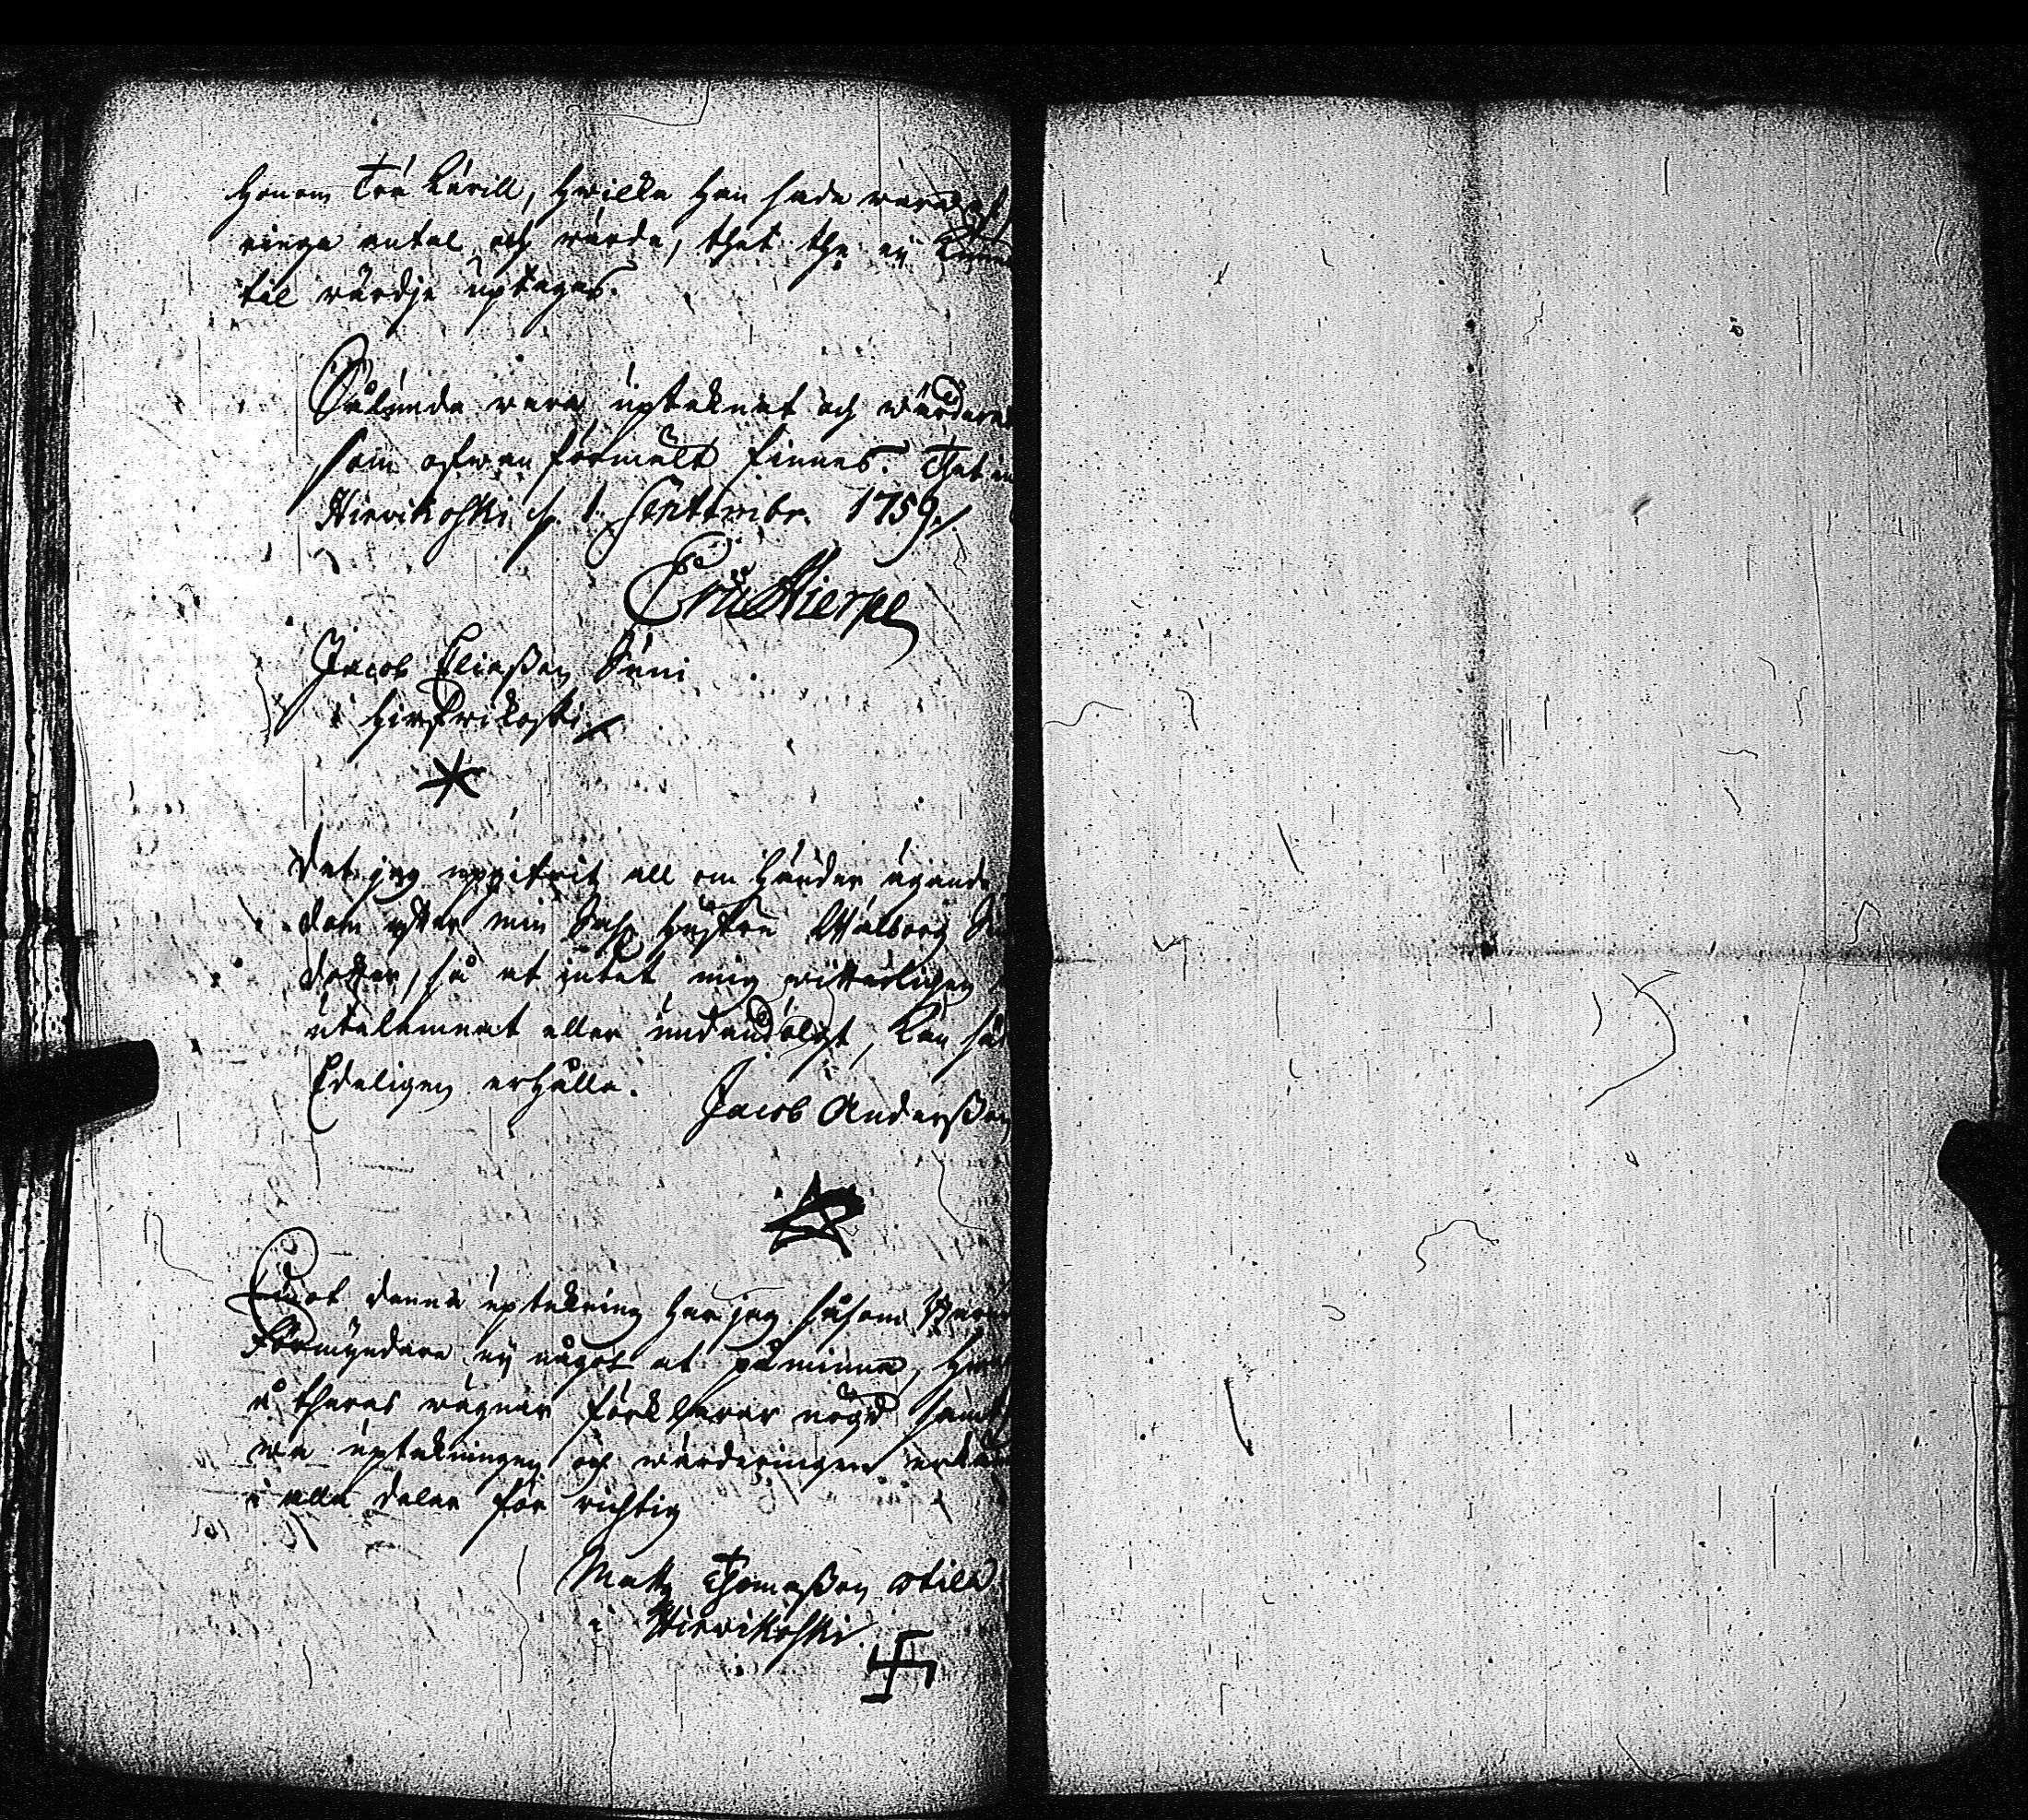 honom Trä kärill, hwilka han sade wara af
ringa antal och wärde, thet the ej kunna
til wärdje uptagas.
Sålunda wara upteknat och wärderat
som ofwan förmält finnes. Thet
Hirvikoski d. 1. Septembr. 1759.
Eric Hierpe
Jacob Eliaßon Suni
i Hirfwikoski
Det jag uppgifwit all om händer ägande
dom efter min Sahl. hustru Walborg
dotter, så at intet mig witterligen
utelemnat eller undandölgt, kan
Edeligen erhålla.
Jacob Anderßon
Emot denna uptekning har jag såsom Barne
Förmyndare ej något at påminna,
å theras wägnar förklarar nögd samt
uptekningen och wärderingen
i alla delar för richtig
Matts Thomaßon
i Hirvikoski